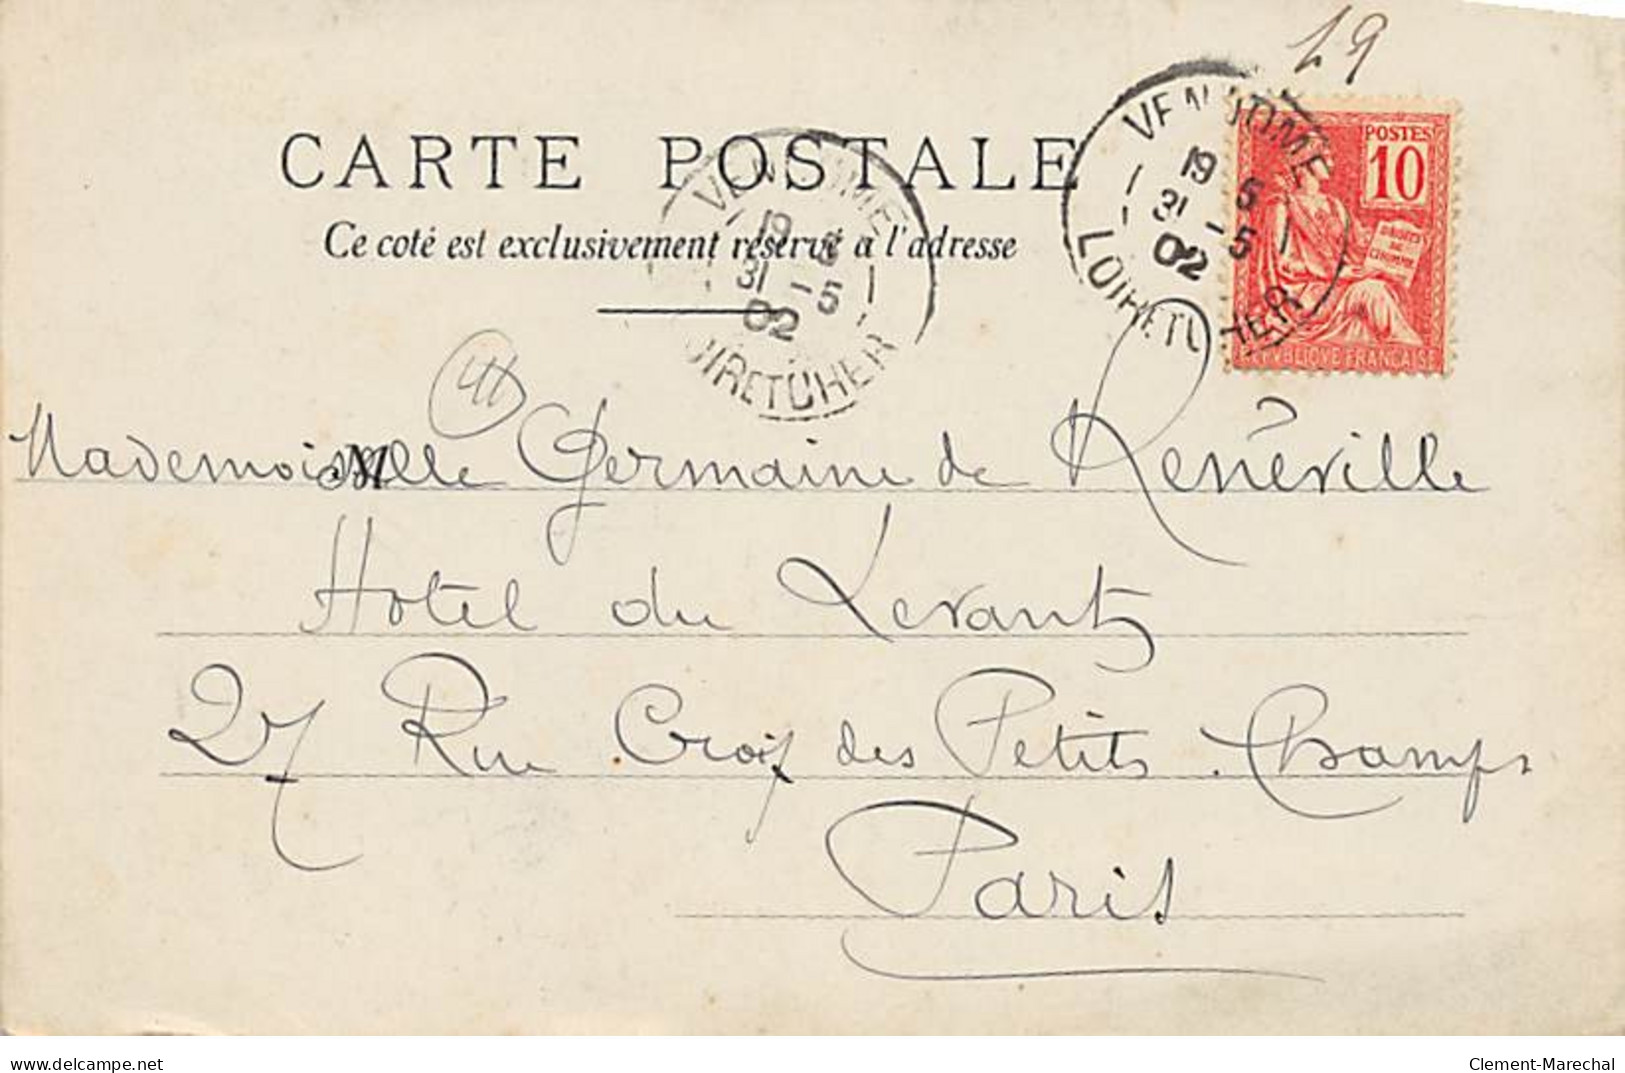 19
CARTE POSTALE
Ce coté est exclusivement réservé a l'adresse
VENDOME
19 5
31 -5
02
LOIR ET CHER
VENDOME
19
31 -5
02
LOIR ET CHER
POSTES
10
DROITS
DE
L'HOMME
REPVBLIQVE FRANÇAISE
41
Mademoiselle Germaine de Renéville
Hotel du Levant
27 Rue Croix des Petits Champs
Paris
delcampe.net
Clement-Marechal